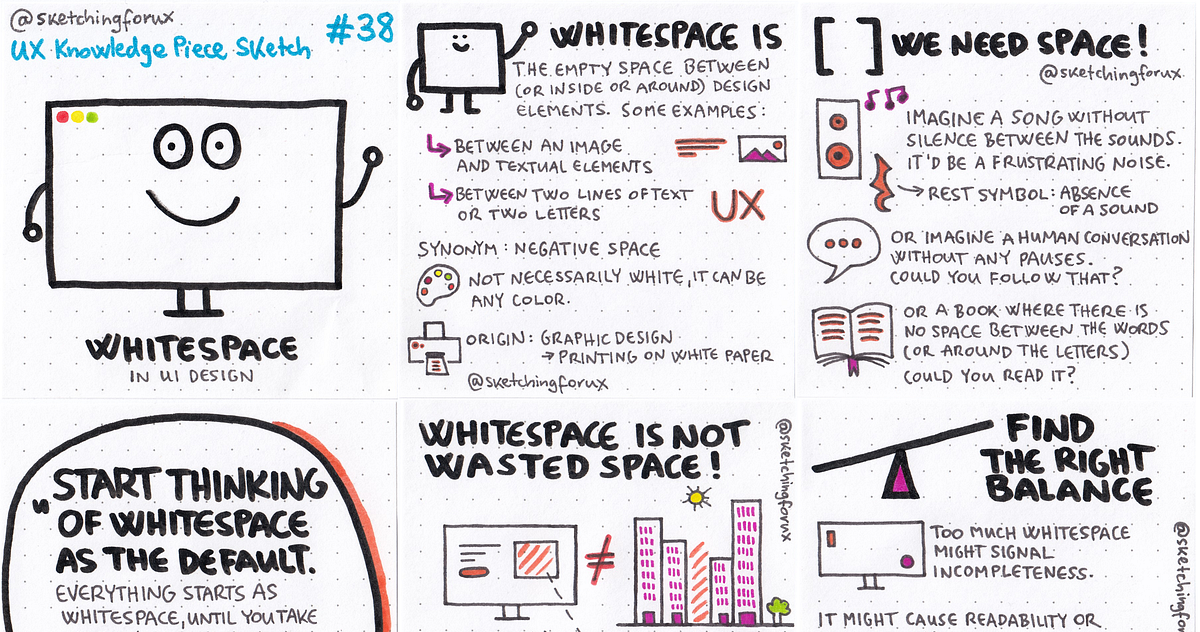 @sketchingforux
UX Knowledge Piece Sketch #38
WHITESPACE
IN UI DESIGN
WHITESPACE IS
THE EMPTY SPACE BETWEEN
(OR INSIDE OR AROUND) DESIGN
ELEMENTS. SOME EXAMPLES:
BETWEEN AN IMAGE
AND TEXTUAL ELEMENTS
BETWEEN TWO LINES OF TEXT
OR TWO LETTERS
UX
SYNONYM: NEGATIVE SPACE
NOT NECESSARILY WHITE, IT CAN BE
ANY COLOR.
ORIGIN: GRAPHIC DESIGN
→ PRINTING ON WHITE PAPER
@sketchingforux
[ ] WE NEED SPACE!
@sketchingforux
IMAGINE A SONG WITHOUT
SILENCE BETWEEN THE SOUNDS.
IT'D BE A FRUSTRATING NOISE.
→ REST SYMBOL: ABSENCE
OF A SOUND
OR IMAGINE A HUMAN CONVERSATION
WITHOUT ANY PAUSES.
COULD YOU FOLLOW THAT?
OR A BOOK WHERE THERE IS
NO SPACE BETWEEN THE WORDS
(OR AROUND THE LETTERS)
COULD YOU READ IT?
"START THINKING
OF WHITESPACE
AS THE DEFAULT.
EVERYTHING STARTS AS
WHITESPACE, UNTIL YOU TAKE
WHITESPACE IS NOT
WASTED SPACE!
@sketchingforux
≠
FIND
THE RIGHT
BALANCE
TOO MUCH WHITESPACE
MIGHT SIGNAL
INCOMPLETENESS.
@sketchingfor
IT MIGHT CAUSE READABILITY OR